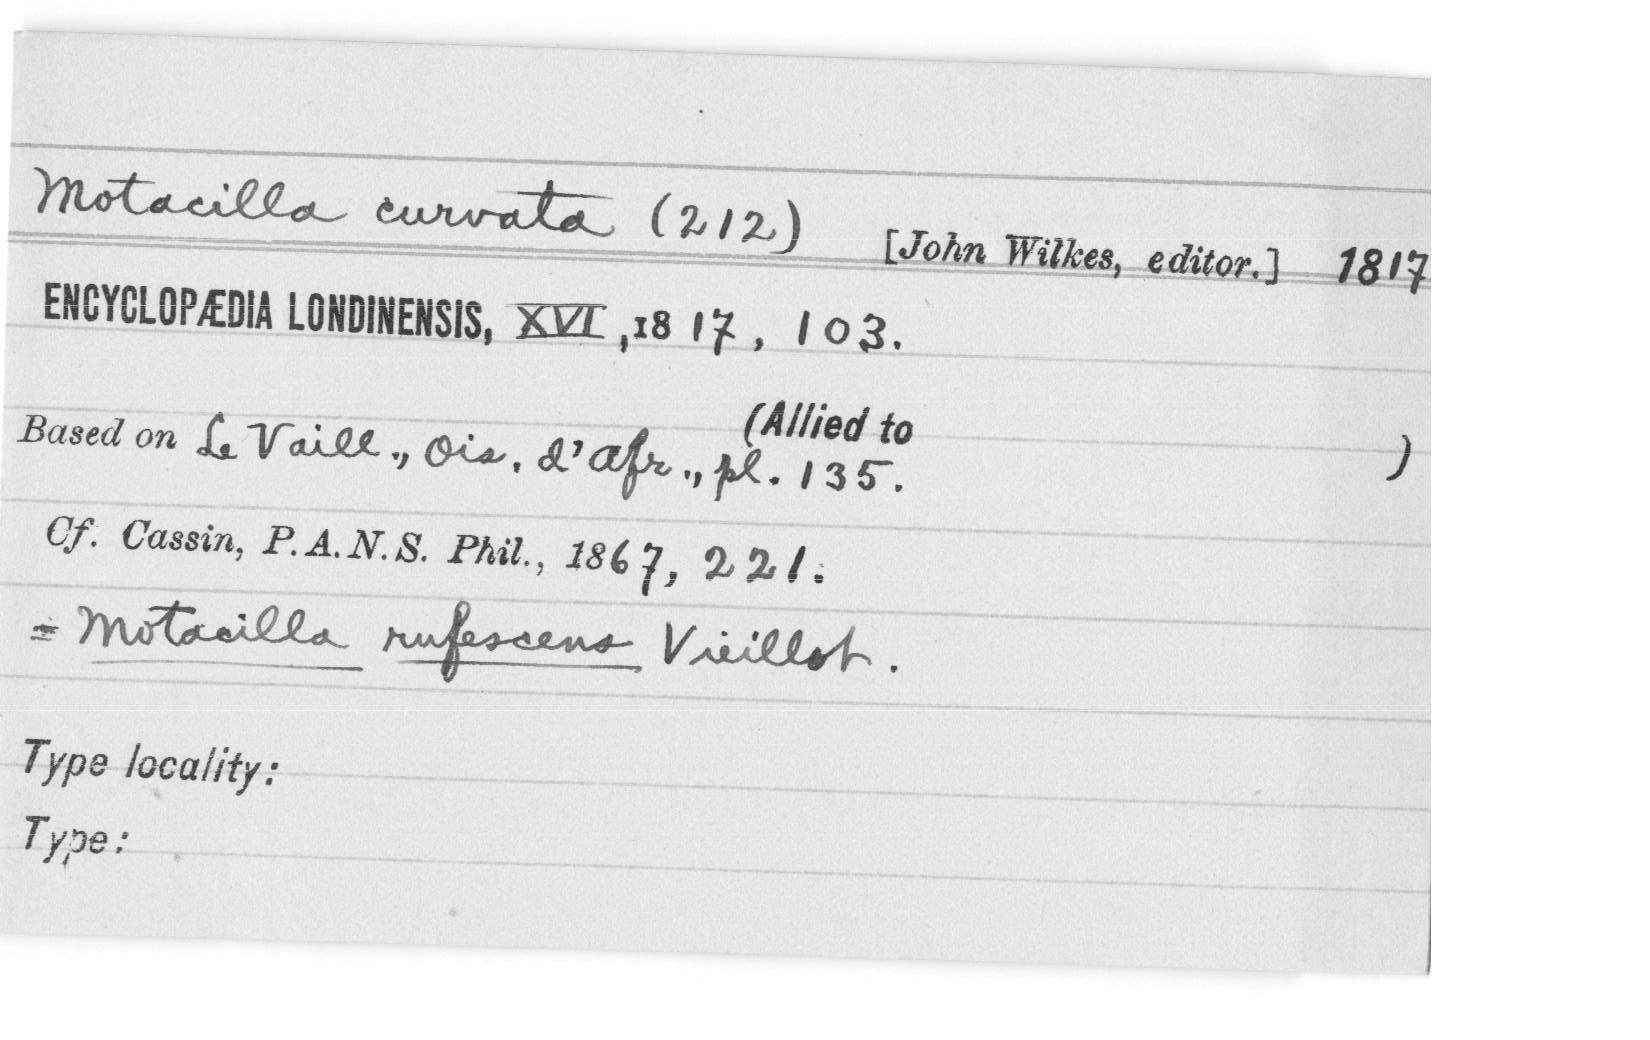 Motacilla curvata (212) [John Wilkes, editor.] 1817
ENCYCLOPÆDIA LONDINENSIS, XVI, 1817, 103.
(Allied to )
Based on Le Vaill., Ois. d'Afr., pl. 135.
Cf. Cassin, P.A.N.S. Phil., 1867, 221.
= Motacilla rufescens Vieillot.
Type locality:
Type: